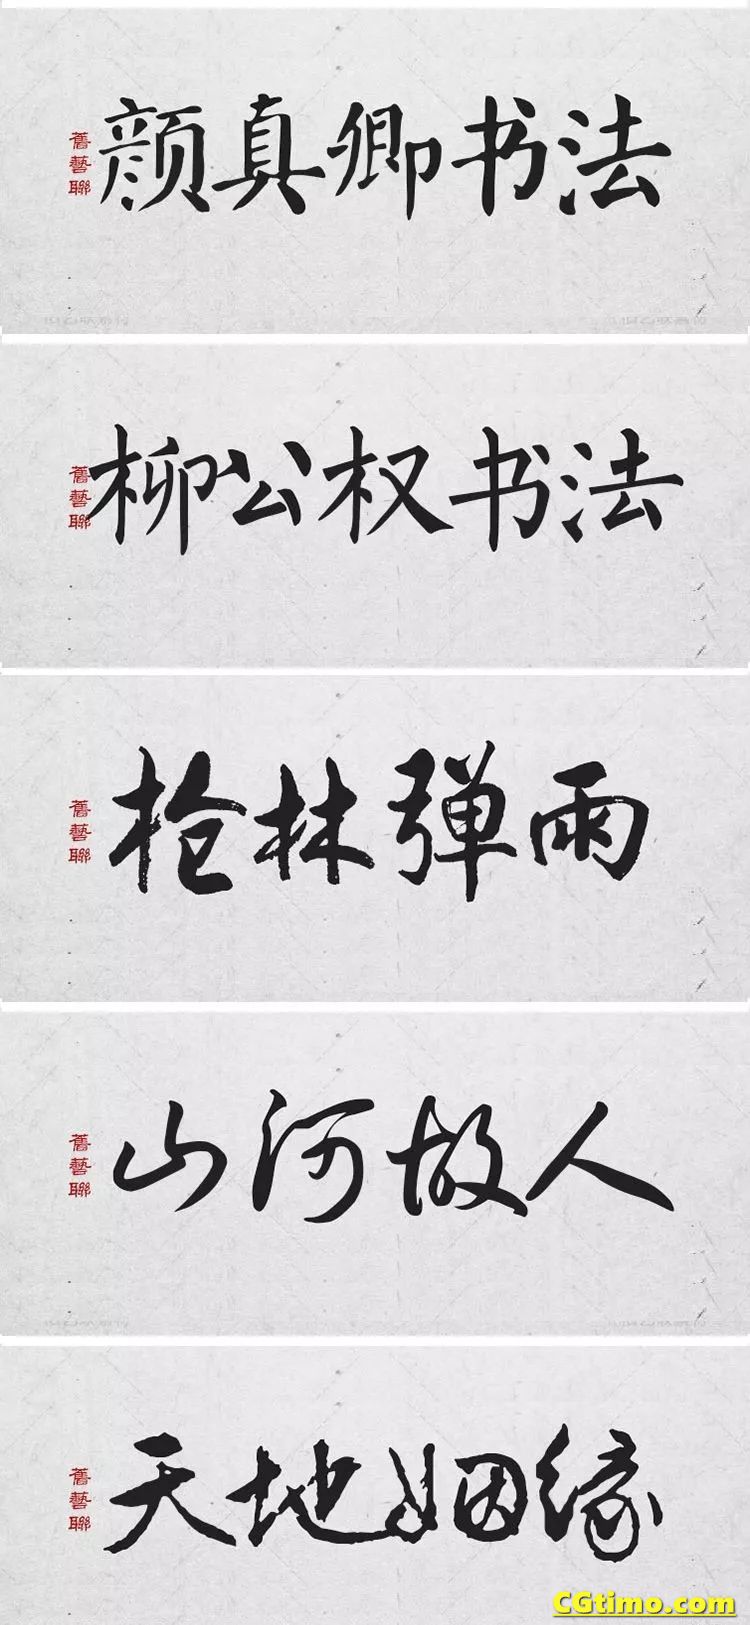 舊藝聯
颜真卿书法
舊藝聯
柳公权书法
舊藝聯
枪林弹雨
舊藝聯
山河故人
舊藝聯
天地姻缘
CGtimo.com